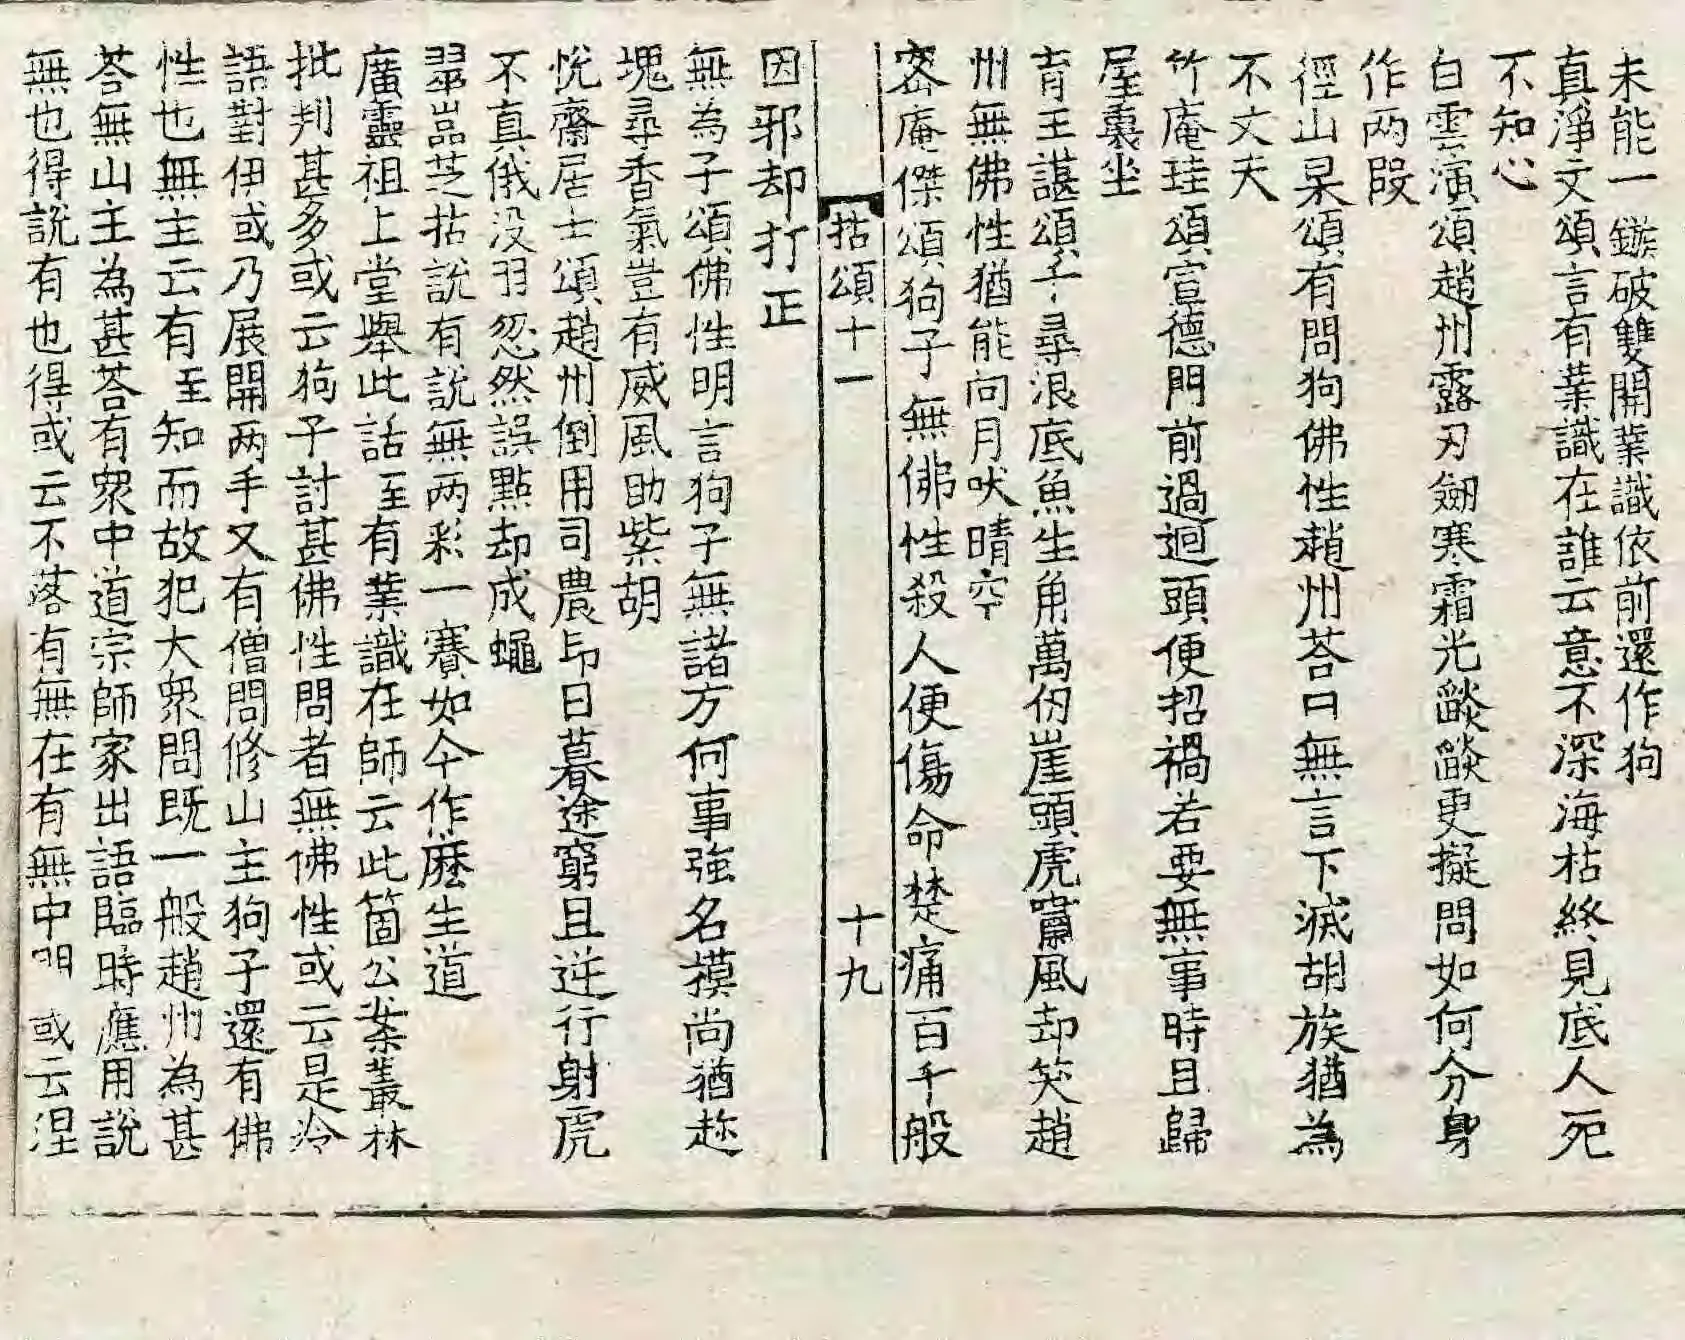 未能一鏃破雙開業識依前還作狗
真淨文頌言有業識在誰云意不深海枯終見底人死
不知心
白雲演頌趙州露刃劒寒霜光燄燄更擬問如何分身
作两段
徑山杲頌有問狗佛性趙州荅曰無言下滅胡族猶為
不丈夫
竹庵珪頌宣德門前過迴頭便招禍若要無事時且歸
屋裏坐
育王諶頌子子尋浪底魚生角萬仞崖頭虎嘯風却笑趙
州無佛性猶能向月吠晴空
密庵傑頌狗子無佛性殺人便傷命楚痛百千般
拈頌十一 十九
因邪却打正
無為子頌佛性明言狗子無諸方何事強名摸尚猶趂
塊尋香氣豈有威風助紫胡
悅齋居士頌趙州倒用司農印日暮途窮且逆行射虎
不真俄没羽忽然誤點却成蠅
翠嵓芝拈說有說無两彩一賽如今作麽生道
廣靈祖上堂舉此話至有業識在師云此箇公案叢林
批判甚多或云狗子討甚佛性問者無佛性或云是冷
語對伊或乃展開两手又有僧問修山主狗子還有佛
性也無主云有至知而故犯大衆問既一般趙州為甚
荅無山主為甚荅有衆中道宗師家出語臨時應用說
無也得說有也得或云不落有無在有無中明或云涅